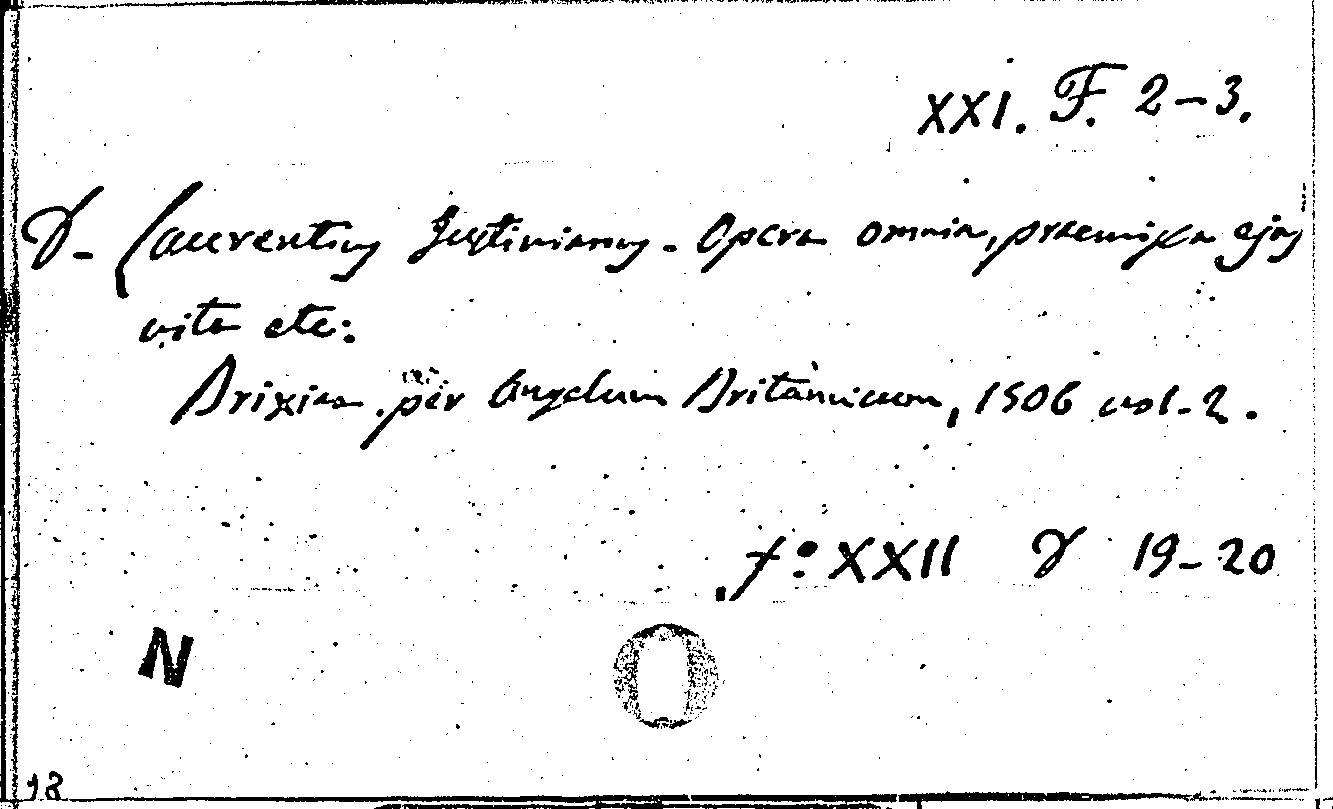 XXI. F. 2-3.
D- Laurentius Justinianus - Opera omnia, praemissa ejus
vita etc:
Brixiae per Angelum Britannicum, 1506 vol. 2.
fº XXII D 19-20
N
18